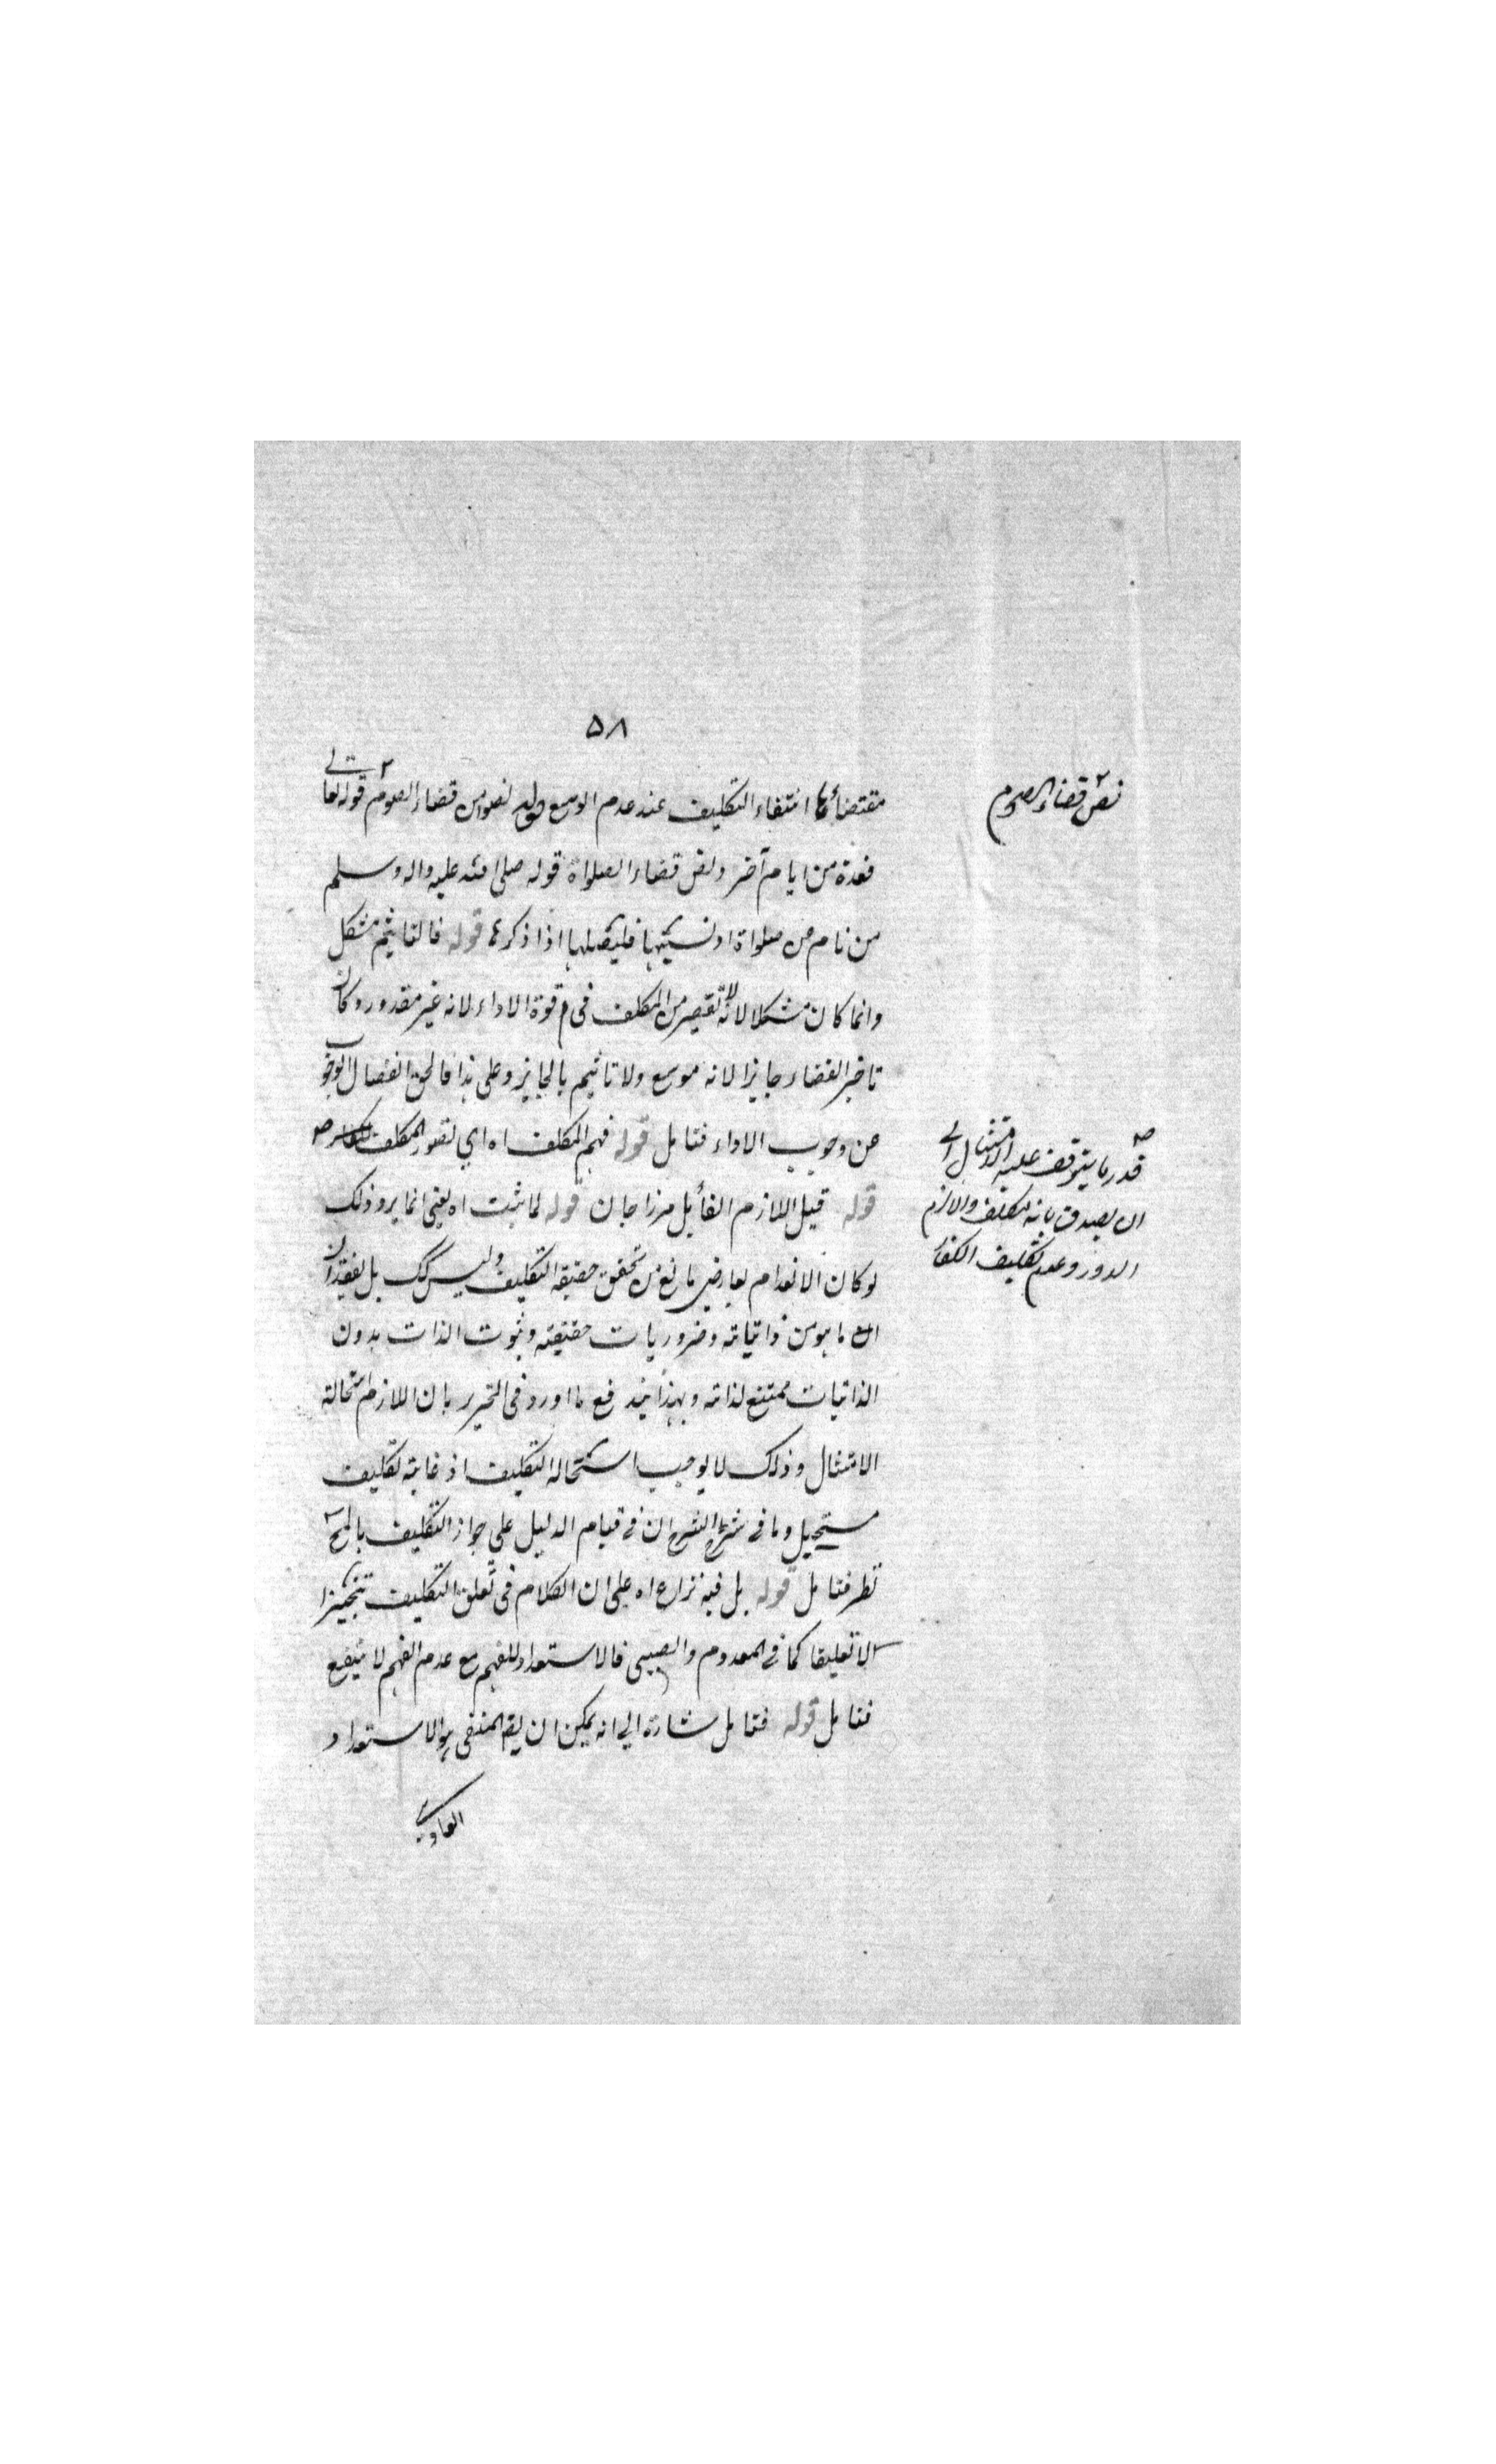 ۵۸
مقتضائها انتفاء التكليف عند عدم الوسع قضاء الصوم قوله تعالى
فعدة من ايام آخر ونص قضاء الصلواة قوله صلى الله عليه واله وسلم
من نام عن صلواة او نسيها فليصلها اذا ذكرها قوله فالتاثيم مشكل
وانما كان مشكلا لانه لا تقصير من المكلف في قوة الاداء لانه غير مقدور وكان
تاخير القضاء جايزا لانه موسع ولا تاثيم بالجايز وعلى هذا فالحق انفصال الوجوب
عن وجوب الاداء فتامل قوله فهم المكلف اه اي تصور المكلف
قوله قيل اللازم القائل مرزا جان قوله لما ثبت اه يعني انما يرد ذلك
لو كان الانعدام لعارض مانع من تحقق حقيقة التكليف وليس كك بل لفقدان
ما هو من ذاتياته وضروريات حقيقته وثبوت الذات بدون
الذاتيات ممتنع لذاته وبهذا يندفع ما اورد في التحرير بان اللازم استحالة
الامتثال وذلك لا يوجب استحالة التكليف اذ غايته تكليف
مستحيل وما في شرح الشرح ان في قيام الدليل على جواز التكليف بالمح
نظر فتامل قوله بل فيه نزاع اه على ان الكلام في تعلق التكليف تنجيزا
لا تعليقا كما في المعدوم والصبي فالاستعداد للفهم مع عدم الفهم لا ينفع
فتامل قوله فتامل اشارة الى انه يمكن ان يقم المنفى هو الاستعداد
العادي
نص قضاء الصوم
قدر ما يتوقف عليه الامتثال لا
ان يصدق بانه مكلف والا لزم
الدور وعدم تكليف الكفار